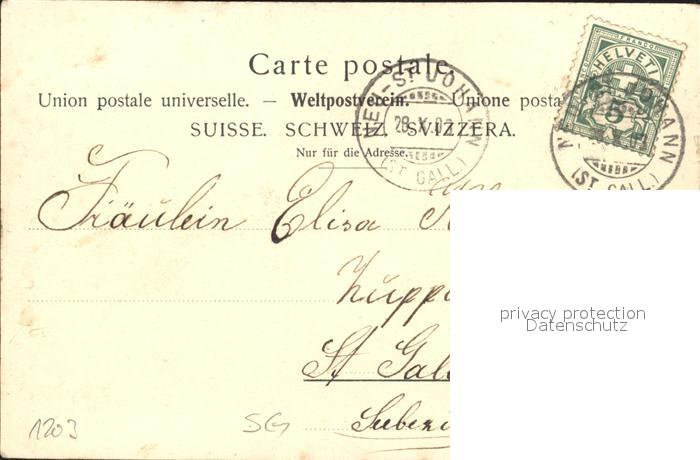 Carte postale.
Union postale universelle. — Weltpostverein. — Unione posta
SUISSE. SCHWEIZ. SVIZZERA.
Nur für die Adresse.
NEU-ST JOHANN
28.X.02
(ST GALL.)
FRANCO
HELVETIA
5
(ST GALL.)
Fräulein Elisa
St Gal
privacy protection
Datenschutz
1203
SG